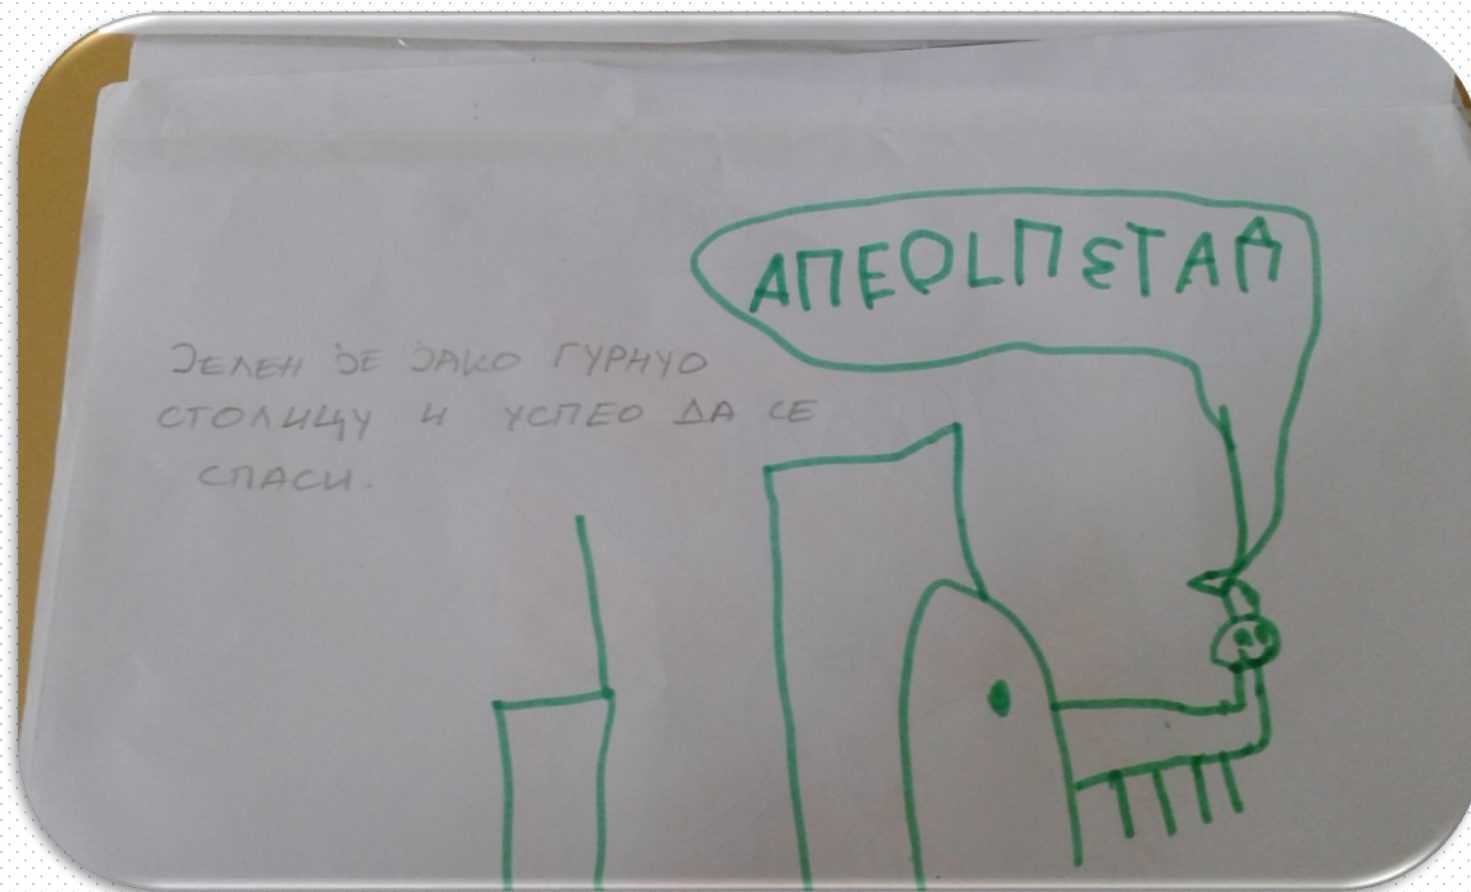 АПЕОLПЕТАД
ЈЕЛЕН ЈЕ ЈАКО ГУРНУО
СТОЛИЦУ И УСПЕО ДА СЕ
СПАСИ.